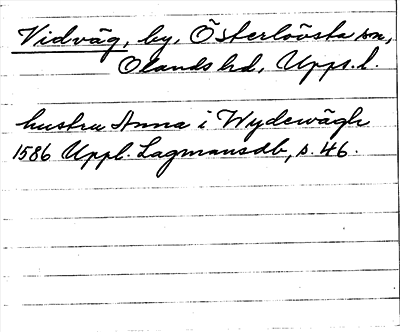 Vidväg, by, Österlövsta sn,
Olands hd, Upps. l.
hustru Anna i Wydewägh
1586 Uppl. Lagmansdb, s. 46.